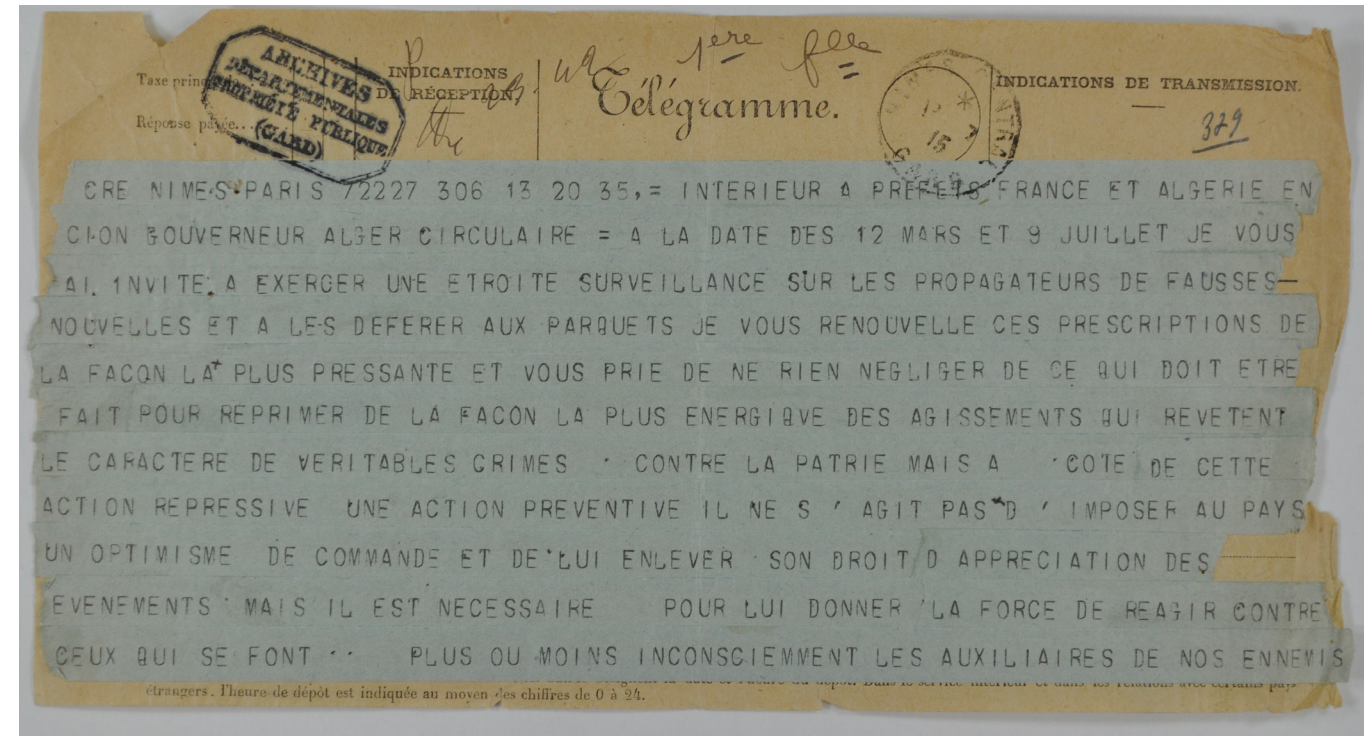 1ère flle
Taxe princ
INDICATIONS
DE RÉCEPTION.
Télégramme.
INDICATIONS DE TRANSMISSION.
Réponse payée...
ARCHIVES
DÉPARTEMENTALES
PROPRIÉTÉ PUBLIQUE
(GARD)
NIMES
15
379
CRE NIMES PARIS 72227 306 13 20 35,= INTERIEUR A PREFETS FRANCE ET ALGERIE EN
CION GOUVERNEUR ALGER CIRCULAIRE = A LA DATE DES 12 MARS ET 9 JUILLET JE VOUS
AI INVITE A EXERCER UNE ETROITE SURVEILLANCE SUR LES PROPAGATEURS DE FAUSSES—
NOUVELLES ET A LES DEFERER AUX PARQUETS JE VOUS RENOUVELLE CES PRESCRIPTIONS DE
LA FACON LA PLUS PRESSANTE ET VOUS PRIE DE NE RIEN NEGLIGER DE CE QUI DOIT ETRE
FAIT POUR REPRIMER DE LA FACON LA PLUS ENERGIQVE DES AGISSEMENTS QUI REVETENT
LE CARACTERE DE VERITABLES CRIMES CONTRE LA PATRIE MAIS A COTE DE CETTE
ACTION REPRESSIVE UNE ACTION PREVENTIVE IL NE S ' AGIT PAS D ' IMPOSER AU PAYS
UN OPTIMISME DE COMMANDE ET DE LUI ENLEVER SON DROIT D APPRECIATION DES
EVENEMENTS MAIS IL EST NECESSAIRE POUR LUI DONNER LA FORCE DE REAGIR CONTRE
CEUX QUI SE FONT PLUS OU MOINS INCONSCIEMMENT LES AUXILIAIRES DE NOS ENNEMIS
étrangers. l'heure de dépôt est indiquée au moyen des chiffres de 0 à 24.